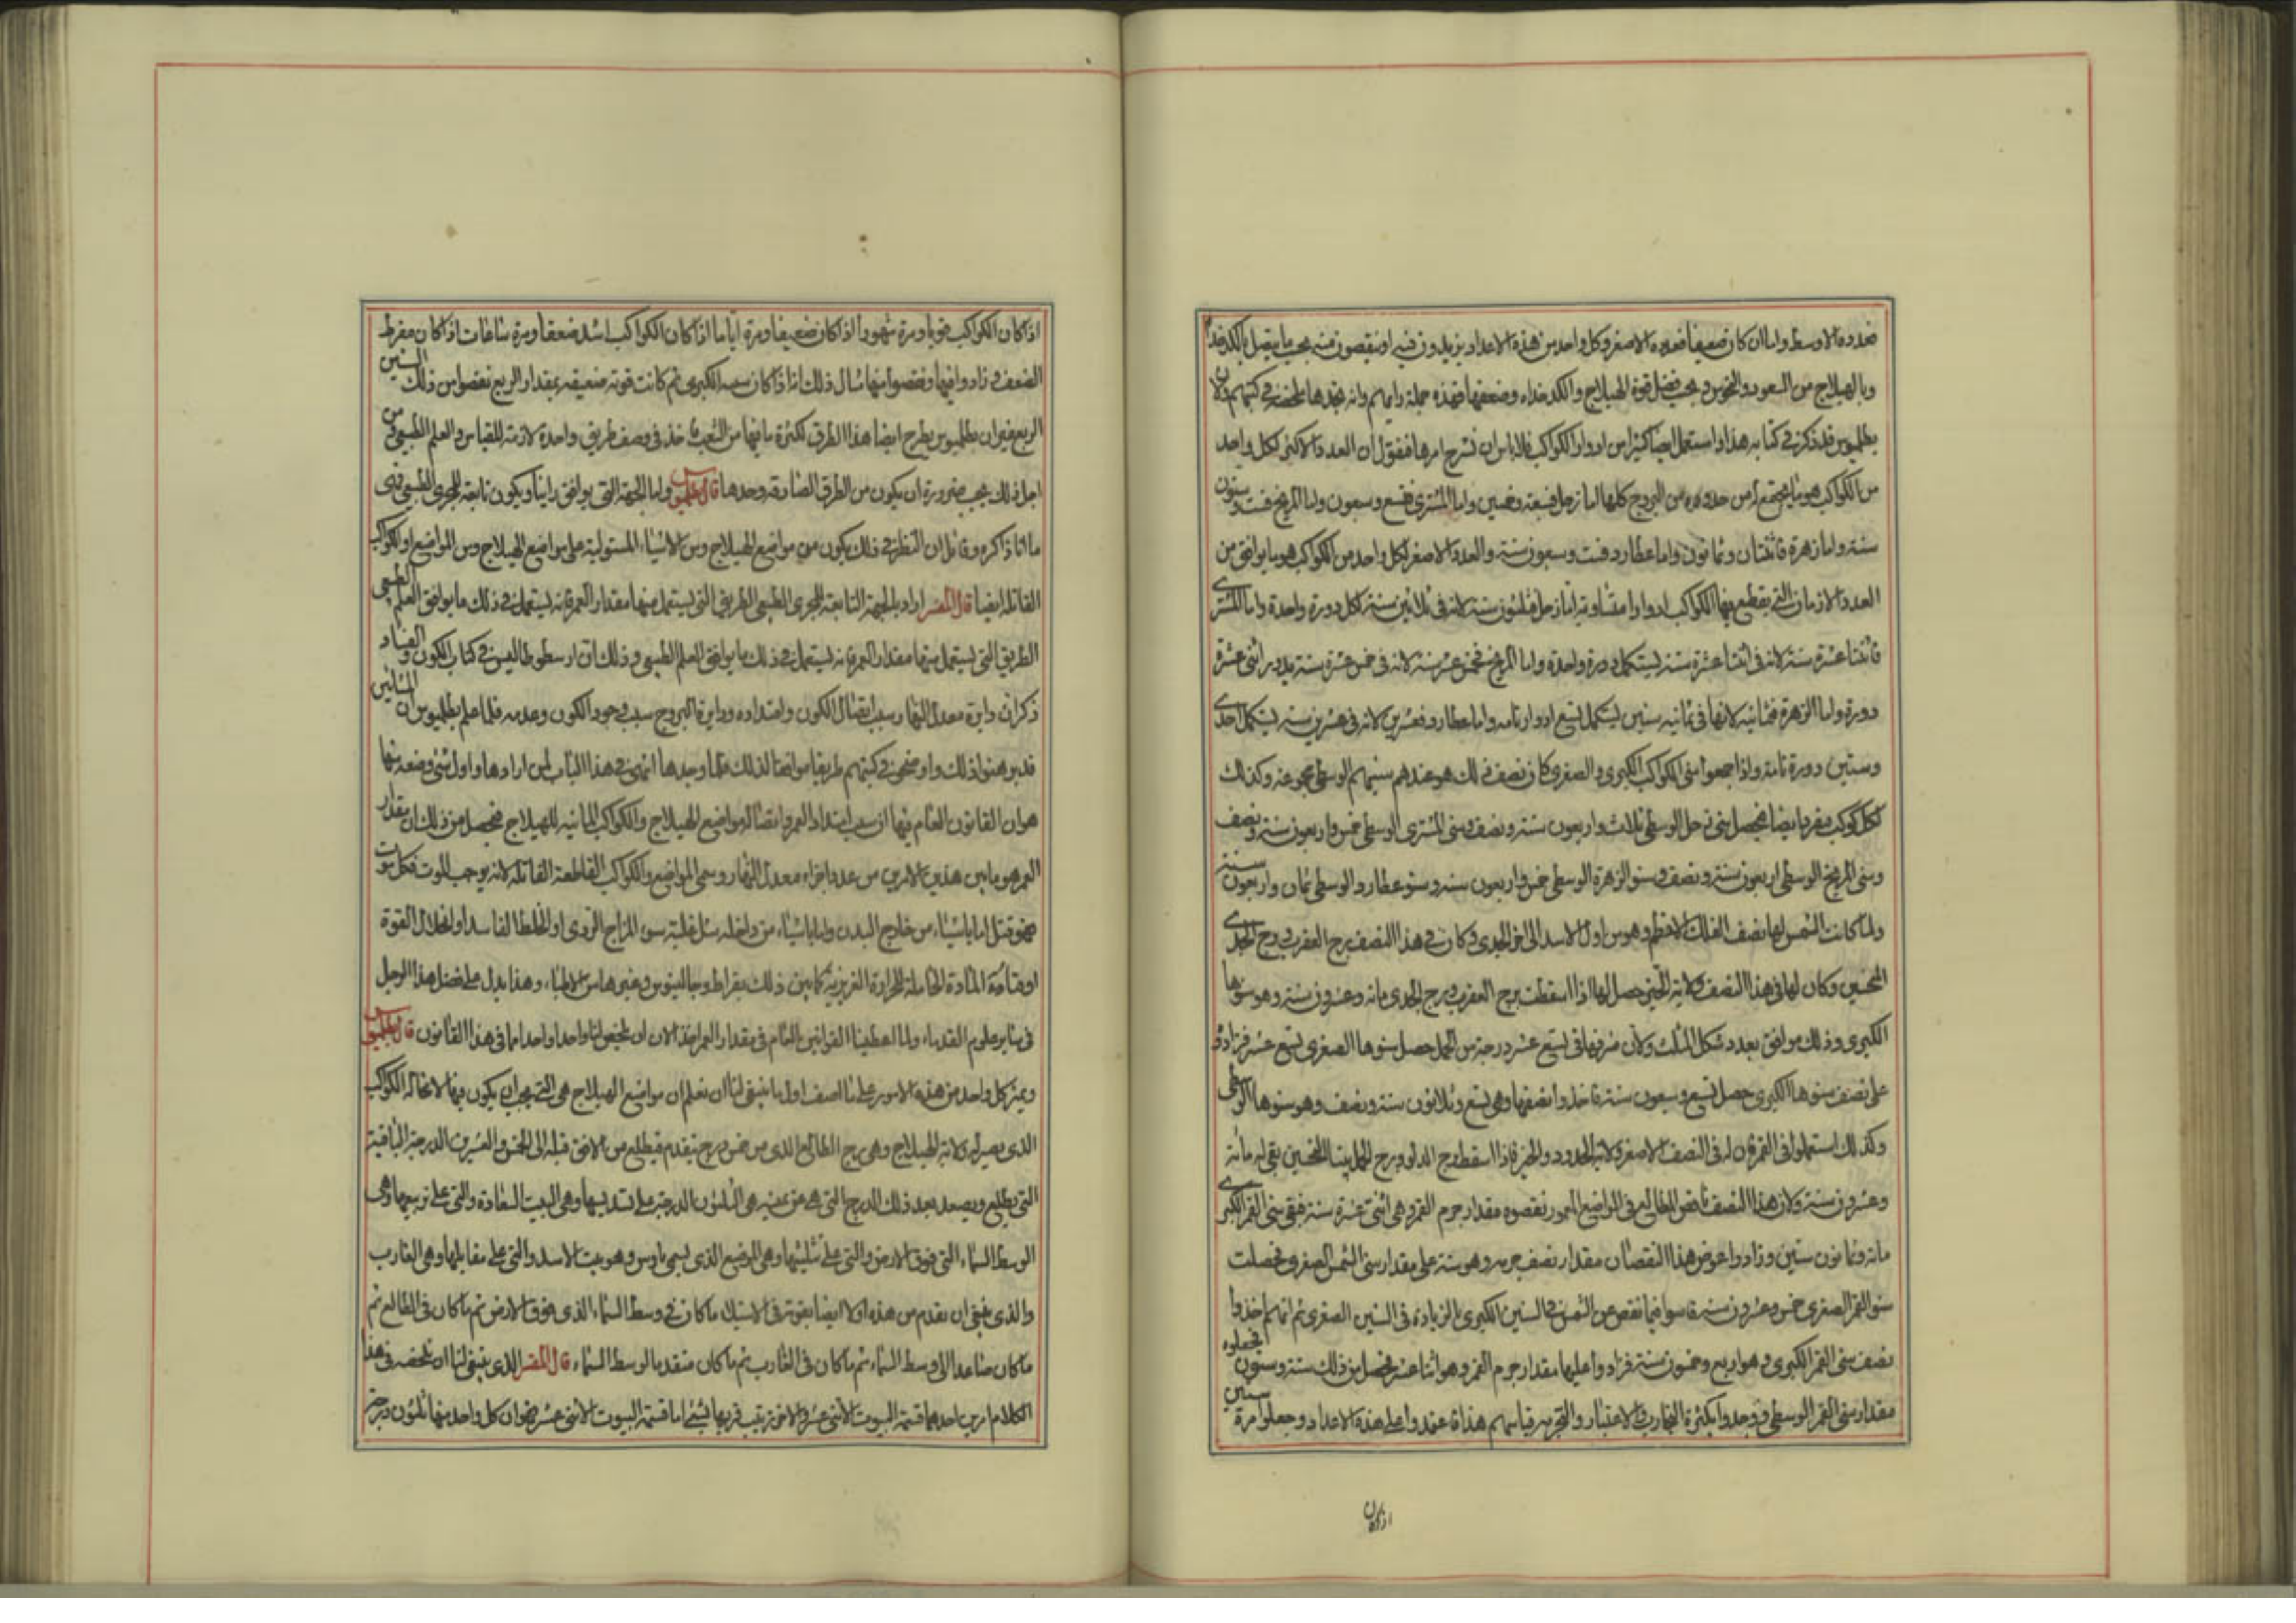 فعدده الاوسط واما ان كان ضعيفا فعدده الاصغر وكل واحد من هذه الاعداد يزيدون فيه او ينقصون منه بحسب ما يتصل بالكدخداه
وبالهيلاج من السعود والنحوس وبحسب فضل قوة الهيلاج والكدخداه وضعفها فهذه جملة رايهم وانه تجدها ملخصه فى كتبهم ولان
بطلميوس قد ذكر فى كتابه هذا واستعمل ايضا كثيرا من ادوار الكواكب فلا باس ان نشرح امرها فنقول ان العدد الاكبر لكل واحد
من الكواكب هو ما يجتمع له من حدوده من البروج كلها اما زحل فسبعة وخمسين واما المشترى فتسع وسبعون واما المريخ فست وستون
سنة واما زهرة فاثنتان وثمانون واما عطارد فست وسبعون سنة والعدد الاصغر لكل واحد من الكواكب هو ما يوافق من
العدد الازمان التى يقطع فيها الكواكب ادوارا متساوية اما زحل فثلثون سنة لانه فى ثلاثين سنة لكل دورة واحدة واما المشترى
فاثنتا عشرة سنة لانه فى اثنتا عشرة سنة يستكمل دورة واحدة واما المريخ فخمس عشر سنة لانه فى خمس عشرة سنة يدير اثنى عشرة
دورة واما الزهرة فثمانية لانها فى ثمانيه سنين يستكمل تسع ادوار تامه واما عطارد فعشرين لانه فى عشرين سنه يستكمل احدى
وستين دورة تامة واذا جمعوا سنى الكواكب الكبرى والصغرى كان نصف ذلك هو عندهم سنيهم الوسطى مجموعة وكذلك
لكل كوكب مفرد ايضا فيحصل سنى زحل الوسطى ثلاث واربعون سنة ونصف وسنى المشترى الوسطى خمس واربعون سنة ونصف
وسنى المريخ الوسطى اربعون سنة ونصف وسنو الزهرة الوسطى خمس واربعون سنة وسنو عطارد الوسطى ثمان واربعون سنة
ولما كانت الشمس لها نصف الفلك الاعظم وهو من اول الاسد الى اخر الجدى وكان فى هذا النصف برج العقرب وبرج الجدى
النحسين وكان لها فى هذا النصف ولاية الحيز حصل لها اذا اسقطت برج العقرب وبرج الجدى مائه وعشرون سنة وهو سنوها
الكبرى وذلك موافق بعدد شكل المثلث ولان شرفها فى تسع عشر درجة من الحمل حصل سنوها الصغرى تسع عشر فزادوا
على نصف سنوها الكبرى حصل تسع وسبعون سنة فاخذوا نصفها وهى تسع وثلاثون سنة ونصف وهو سنوها الوسطى
وكذلك استعملوا فى القمر فان له فى النصف الاصغر ولاية الحدود والحيز فاذا اسقط برج الدلو وبرج الحمل بيتا للنحسين بقى له مائة
وعشرون سنة ولان هذا النصف ناقص المطالع فى المواضع المعمور نقصوه مقدار جرم القمر وهى اثنتى عشرة سنة فبقى سنى القمر الكبرى
مائة وثمانون سنين وزادوا عوض هذا النقصان مقدار نصف جرمه وهو ستة على مقدار سنى الشمس الصغرى فحصلت
سنو القمر الصغرى خمس وعشرون سنة قاسوا فيما نقص عن الشمس فى السنين الكبرى بالزيادة فى السنين الصغرى ثم انهم اخذوا
نصف سنى القمر الكبرى وهو اربع وخمسون سنة فزادوا عليها مقدار جرم القمر وهو اثنا عشر فحصل من ذلك ستة وستون فجعلوه
مقدار سنى القمر الوسطى ووجدوا بكثرة التجارب والاعتبار والتجربه قياسهم هذا فاعتمدوا على هذه الاعداد وجعلوا مرة سنين
اذا كان
اذا كان الكواكب قويا ومرة شهورا اذا كان ضعيفا ومرة اياما اذا كان الكواكب اشد ضعفا ومرة ساعات اذا كان مفرط
الضعف وزادوا فيها ونقصوا منها مثال ذلك اذا كان سنيه الكبرى ثم كانت قوته ضعيفه بمقدار الربع نقصوا من ذلك السنين
الربع فيزان بطلميوس يطرح ايضا هذا الطرق لكثرة ما فيها من التعب فاخذ فى وصف طريق واحدة لازمة للقياس والعلم الطبيعى ومن
اجل ذلك يجب ضرورة ان يكون من الطرق الصادقه وحدها قال بطلميوس واما الجهة التى يوافق راينا ويكون تابعة للمجرى الطبيعى فهى
ما انا ذاكره وقائل ان النظر فى ذلك يكون من مواضع الهيلاج ومن الاشياء المستولية على مواضع الهيلاج ومن المواضع او الكواكب
القاتله ايضا قال المفسر اراد بالجهة التابعة للمجرى الطبيعى الطريق التى يستعمل منها مقدار العمر فانه يستعمل فى ذلك ما يوافق العلم الطبيعى
الطريق التى يستعمل منها مقدار العمر فانه يستعمل فى ذلك ما يوافق العلم الطبيعى وذلك ان ارسطوطاليس فى كتاب الكون والفساد
ذكر ان دايرة معدل النهار سبب اتصال الكون وامتداده ودايرة البروج سبب وجود الكون وعدمه فلما علم بطلميوس ان المشائين
قد برهنوا ذلك واوضحوا فى كتبهم طريقا موافقا لذلك فلما وجدها انتهى فى هذا الباب لمن ارادها واول شئ وضعه منها
هو ان القانون العام فيها ان سبب امتداد العمر واتصاله مواضع الهيلاج والكواكب المانيه للهيلاج فيحصل من ذلك ان مقدار
العمر هو ما بين هذين الامرين من عدد اجزاء معدل النهار وسمى المواضع والكواكب القاطعة القاتله لانه يوجب الموت فكل موت
فهو قتل اما باشياء من خارج البدن واما باشياء من داخله مثل غلبة سوء المزاج الردى او الخلط الفاسد او انحلال القوة
او فناء المادة الحاملة للحرارة الغريزيه كما بين ذلك بقراط وجالينوس وغيرها من الاطباء وهذا يدل على فضل هذا الرجل
فى ساير علوم القدماء ولما اعطينا القوانين العام فى مقدار العمر اخذ الان ان يلخص لنا واحدا واحدا ما فى هذا القانون قال بطلميوس
ويميز كل واحد من هذه الامور على ما اصف اول ما ينبغى لنا ان نعلم ان مواضع الهيلاج هى التى يجب ان يكون فيها لا محالة الكواكب
الذى يصير له ولاية الهيلاج وهى برج الطالع الذى من خمس درج يتقدم فيطلع من الافق قبله الى الخمس والعشرين الدرجة الباقية
التى يطلع ويصعد بعد ذلك الدرج التى هى من يمينه هى الثلثون الدرجة على تسديسها وهى البيت السعادة والتى على تربيعها وهى
الوسط السماء التى فوق الارض والتى على تثليثها وهى الموضع الذى يسمى باوس وهو بيت الاسد والتى على مقابلها وهى الغارب
والذى ينبغى ان يقدم من هذه اولا ايضا بقوته فى الاستيلاء ما كان فى وسط السماء الذى فوق الارض ثم ما كان فى الطالع ثم
ما كان صاعدا الى وسط السماء ثم ما كان فى الغارب ثم ما كان متقدما لوسط السماء قال المفسر الذى ينبغى لنا ان نلخصه فى هذا
الكلام امرين احدهما قسمة البيوت الاثنى عشر والاخر ترتيب قربها بشئ اما قسمة البيوت الاثنى عشر فهو ان كل واحد منها ثلثون درجة